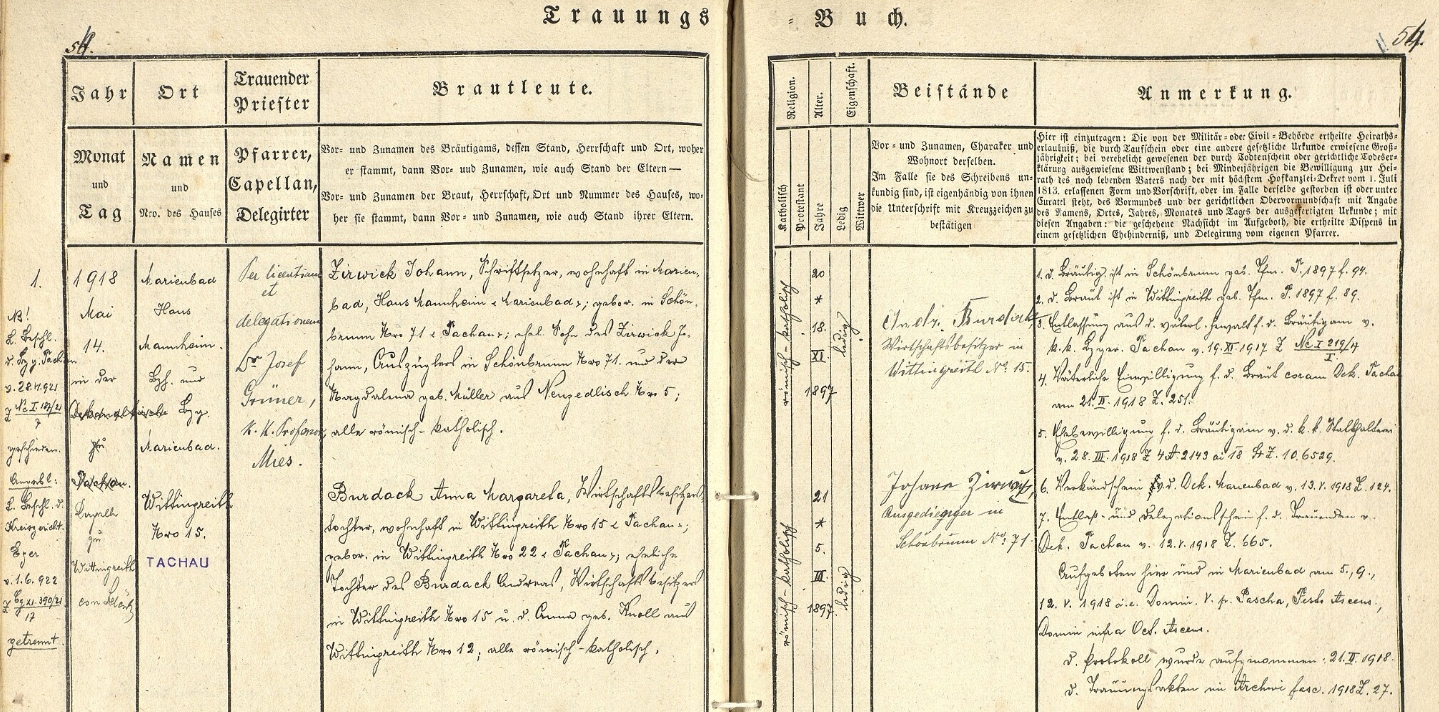 Trauungs = Buch.
54.
54.
Jahr
Ort
Trauender
Priester
Brautleute.
Monat
und
Tag
Namen
und
Nro. des Hauses
Pfarrer,
Capellan,
Delegirter
Vor- und Zunamen des Bräutigams, dessen Stand, Herrschaft und Ort, woher
er stammt, dann Vor- und Zunamen, wie auch Stand der Eltern —
Vor- und Zunamen der Braut, Herrschaft, Ort und Nummer des Hauses, wo-
her sie stammt, dann Vor- und Zunamen, wie auch Stand ihrer Eltern.
1.
1918
Mai
14.
in der
zu
Tachau.
Capelle
zu
Wittingreith
NB!
v. 28.4.921
geschieden.
Kreisgericht
Eger
v. 1.6.922
getrennt.
Marienbad
Haus
Mannheim.
Bzh. und
Bzg.
Marienbad.
Wittingreith
Nro 15.
TACHAU
Per licentiam
et
delegationem
Dr Josef
Grüner,
k. k. Professor,
Mies.
Zirwick Johann, Schriftsetzer, wohnhaft in Marien-
bad, Haus Mannheim "Marienbad"; gebor. in Schön-
brunn Nro 71 "Tachau"; ehel. Sohn des Zirwick Jo-
hann, Auszüglers in Schönbrunn Nro 71. und der
Magdalena geb. Müller aus Neugedlisch Nro 5;
alle römisch-katholisch.
Burdack Anna Margareta, Wirtschaftsbesitzers-
tochter, wohnhaft in Wittingreith Nro 15 "Tachau";
gebor. in Wittingreith Nro 22 "Tachau"; eheliche
Tochter des Burdack Andreas, Wirtschaftsbesitzers
in Wittingreith Nro 15 u. d. Anna geb. Knoll aus
Wittingreith Nro 12; alle römisch-katholisch.
Religion.
Alter.
Eigenschaft.
Beistände
Anmerkung.
Katholisch
Protestant
Jahre
Ledig
Wittwer
Vor- und Zunamen, Charakter und
Wohnort derselben.
Im Falle sie des Schreibens un-
kundig sind, ist eigenhändig von ihnen
die Unterschrift mit Kreuzzeichen zu
bestätigen
Hier ist einzutragen: Die von der Militär- oder Civil-Behörde ertheilte Heiraths-
erlaubniß, die durch Taufschein oder eine andere gesetzliche Urkunde erwiesene Groß-
jährigkeit; bei verehelicht gewesenen der durch Todtenschein oder gerichtliche Todeser-
klärung ausgewiesene Wittwenstand; bei Minderjährigen die Bewilligung zur Hei-
rath des noch lebenden Vaters nach der mit höchstem Hofkanzlei-Dekret vom 1. Juli
1813. erlassenen Form und Vorschrift, oder im Falle derselbe gestorben ist oder unter
Curatel steht, des Vormundes und der gerichtlichen Obervormundschaft mit Angabe
des Namens, Ortes, Jahres, Monates und Tags der ausgefertigten Urkunde; mit
diesen Angaben: die geschehene Nachsicht im Aufgeboth, die ertheilte Dispens in
einem gesetzlichen Ehehinderniß, und Delegirung vom eigenen Pfarrer.
römisch-katholisch
20
*
18.
XI
1897
ledig
Andr. Burdak
Wirtschaftsbesitzer in
Wittingreith No 15.
1. d. Bräutig. ist in Schönbrunn geb. Tfm. T. 1897 f. 94.
2. d. Braut ist in Wittingreith geb. Tfm. T. 1897 f. 89.
3. Entlassung aus d. väterl. Gewalt f. d. Bräutigam v.
k. k. Bzger. Tachau v. 19. XI 1917 Z Nc I 219/17
4. Väterliche Einwilligung f. d. Braut coram Dek. Tachau
am 21. II. 1918 Z. 251.
5. Ehebewilligung f. d. Bräutigam v. d. k. k. Statthalterei
v. 28. III. 1918 Z 4 A 2143 ai 18 St Z. 106529.
römisch-katholisch
21
*
5.
III.
1897.
ledig
Johann Zirwick,
Ausgedingter in
Schönbrunn No 71.
6. Verkündschein d. Dek. Marienbad v. 13. V. 1918 Z. 124.
7. Entlass- und Delegationschein f. d. Trauenden v.
Dek. Tachau v. 12. V. 1918 Z. 665.
Aufgeboten hier und in Marienbad am 5., 9.,
12. V. 1918 d. i. Domin. V. p. Pascha, Festo Ascens.,
Domin infra Oct. Ascens.
d. Protokoll wurde aufgenommen: 21. II. 1918.
d. Trauungsakten im Archiv fasc. 1918 Z. 27.